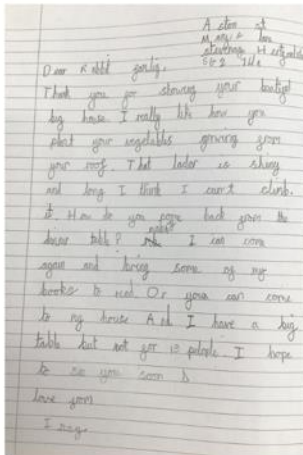 A ston
M
Stevenage H
SG2
Dear Rabbit family.
Thank you for showing your
big house I really like how you
plant your vegetables growing from
your roof. That lader is shiny
and long I think I can't climb.
it. How do you back from the
table? I can come
again and bring some of my
books to read. Or you can come
to my house And I have a big
table but not for 13 people. I hope
to see you soon
love from
I